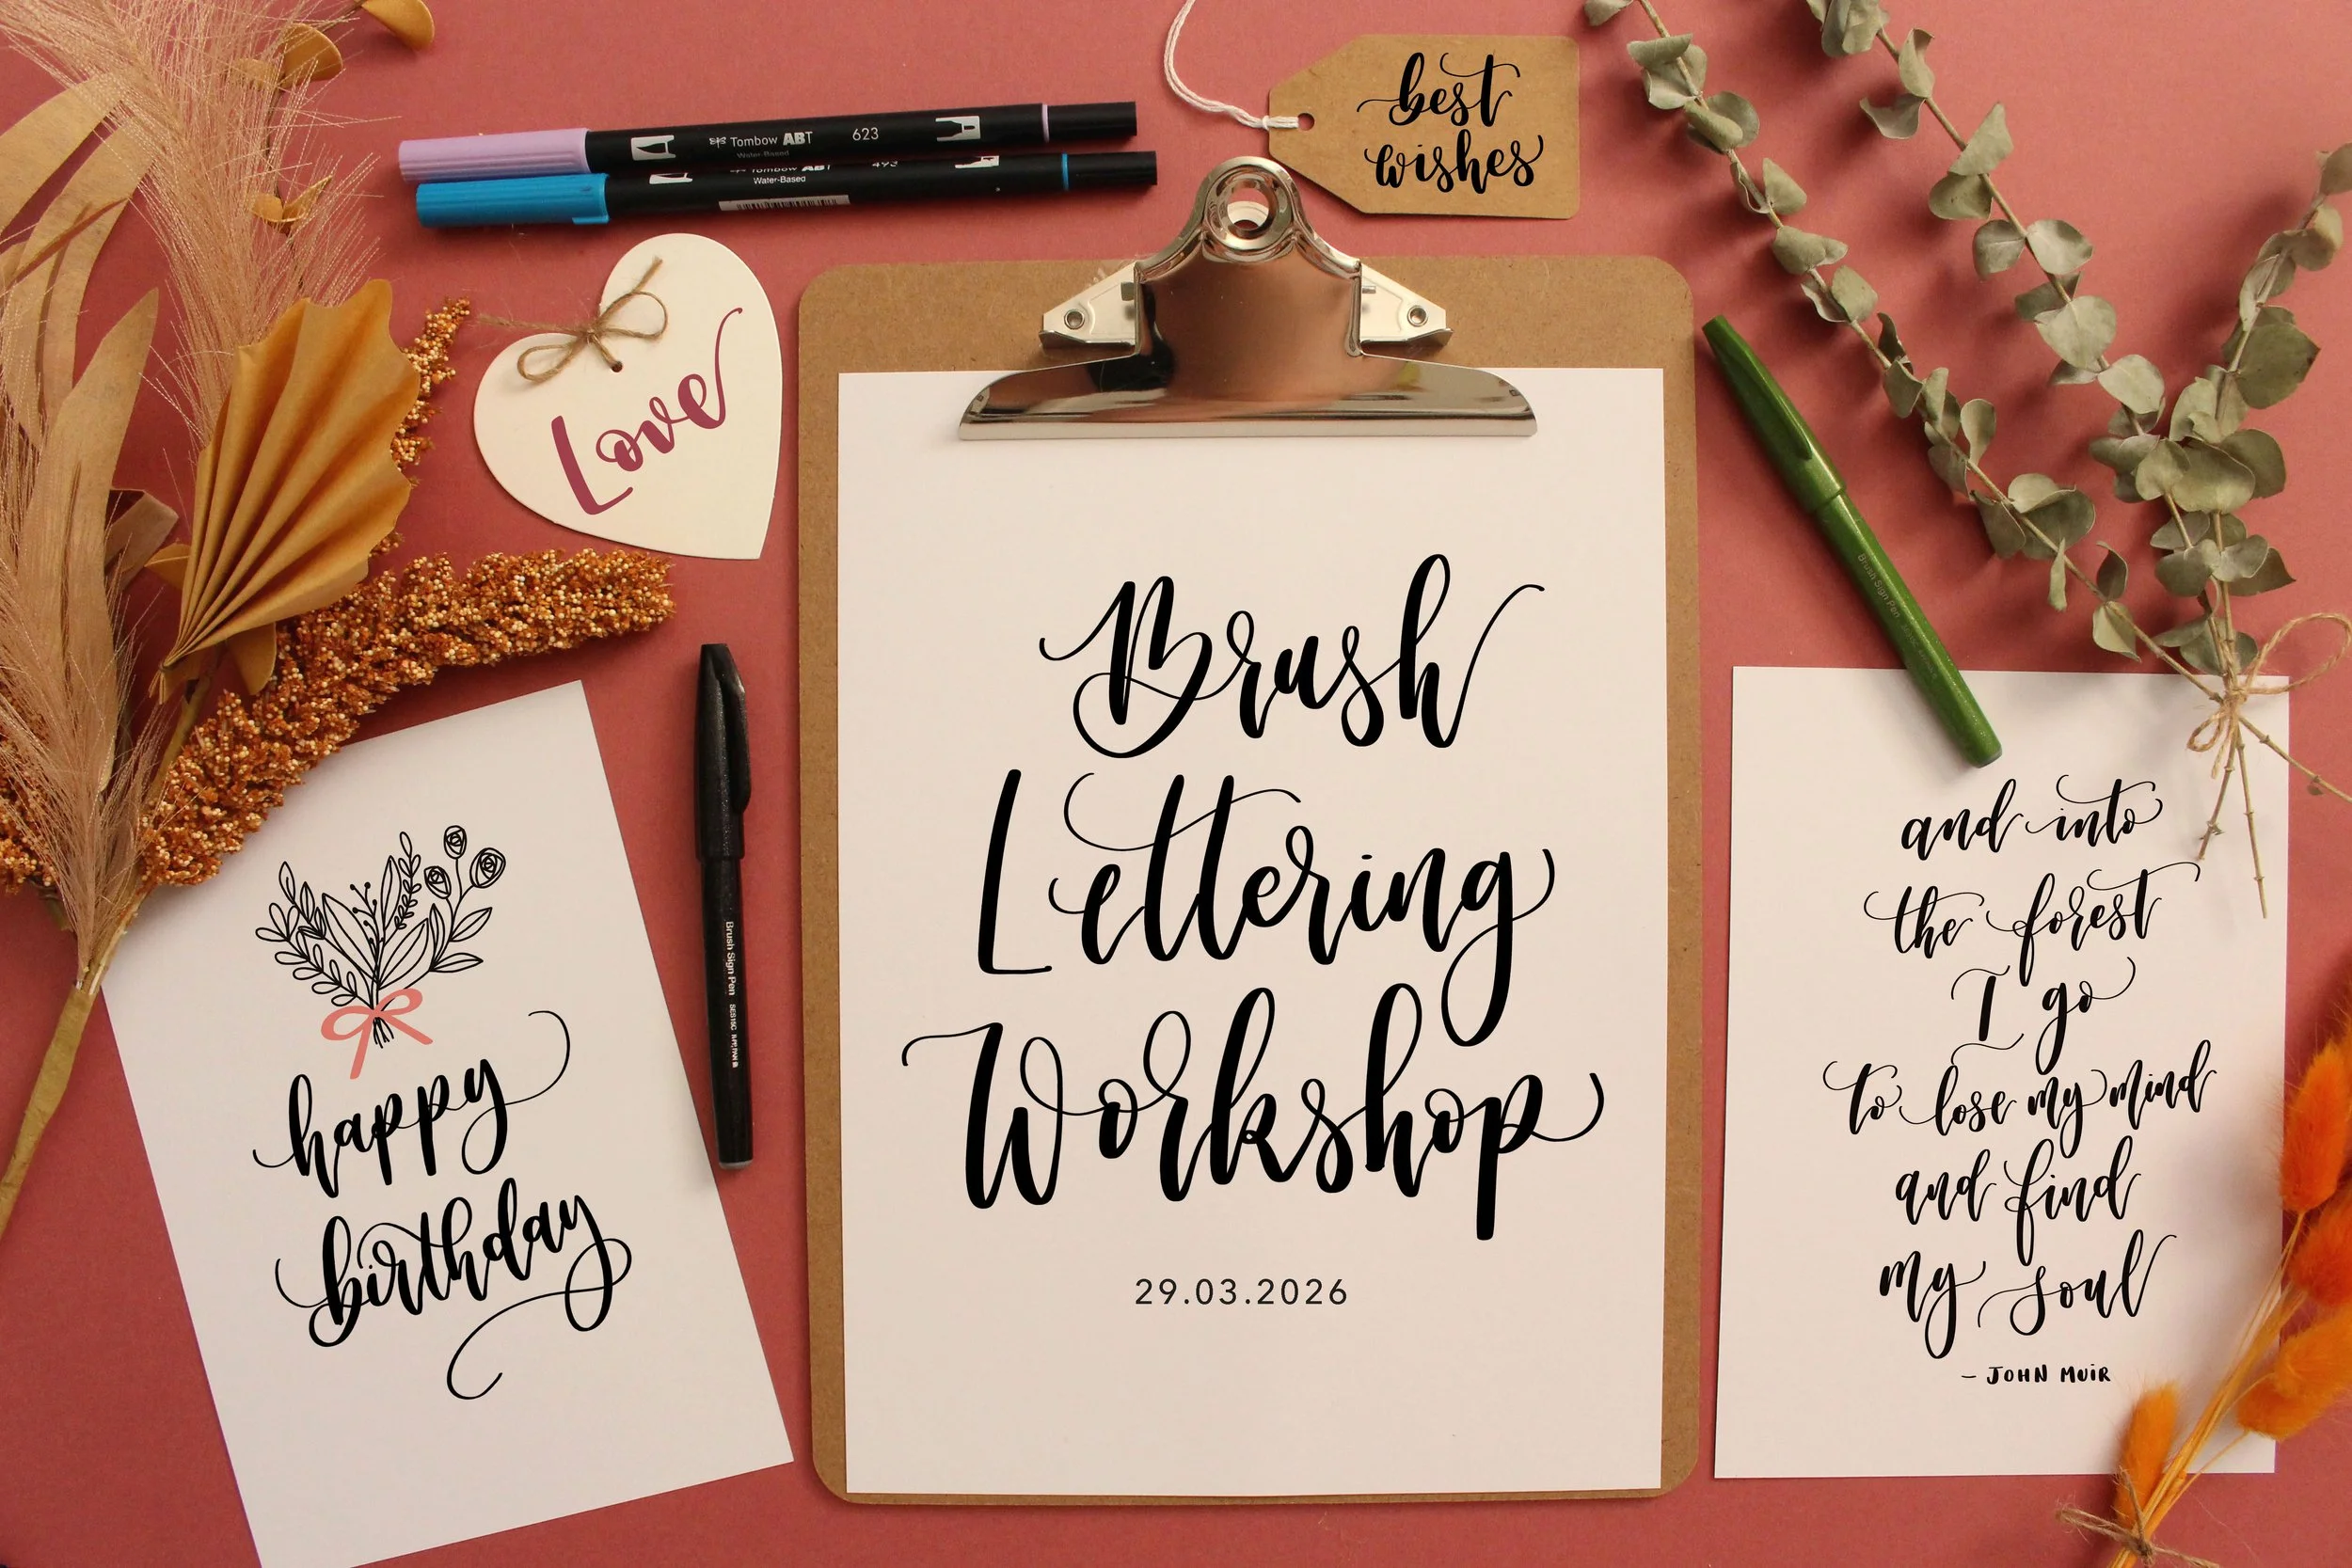 Tombow ABT 623
Water-Based
Tombow ABT 493
Water-Based
best
wishes
Love
Brush
Lettering
Workshop
29.03.2026
Brush Sign Pen
Brush Sign Pen
happy
birthday
and into
the forest
I go
to lose my mind
and find
my soul
- JOHN MUIR